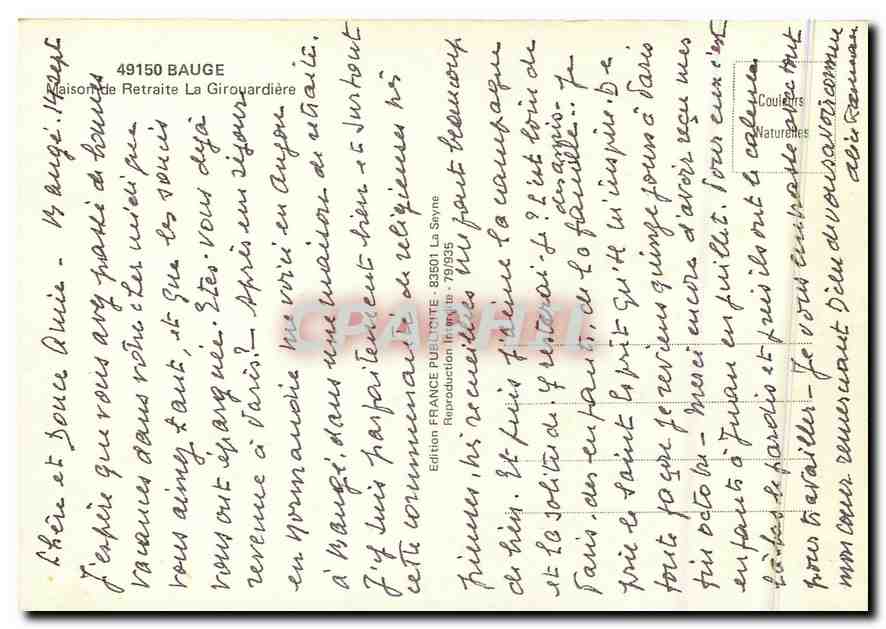 49150 BAUGE
Maison de Retraite La Girouardière
Chère et Douce Amie - Baugé. 14 sept
J'espère que vous avez passé de bonnes
vacances dans votre cher midi que
vous aimez tant, et que les soucis
vous ont épargnée. Etes-vous déjà
revenue à Paris? - Après un séjour
en Normandie me voici en Anjou
à Baugé, dans une maison de retraite.
J'y suis parfaitement bien et surtout
cette communauté de religieuses très
pieuses, très recueillies me font beaucoup
de bien. Et puis j'aime la campagne
et la solitude. Y resterai-je? C'est loin de
Paris, des enfants, de la famille.. Je
des amis -
prie le Saint Esprit qu'il m'inspire. De
toute façon je reviens quinze jours à Paris
fin octobre - Merci encore d'avoir reçu mes
enfants à Juan en juillet. Pour eux c'est
le paradis et puis ils ont le calme
pour travailler - Je vous embrasse avec tout
mon cœur remerciant Dieu de vous avoir connue
Edition FRANCE PUBLICITE - 83501 La Seyne
Reproduction Interdite - 79/935
Couleurs
Naturelles
CPARHII